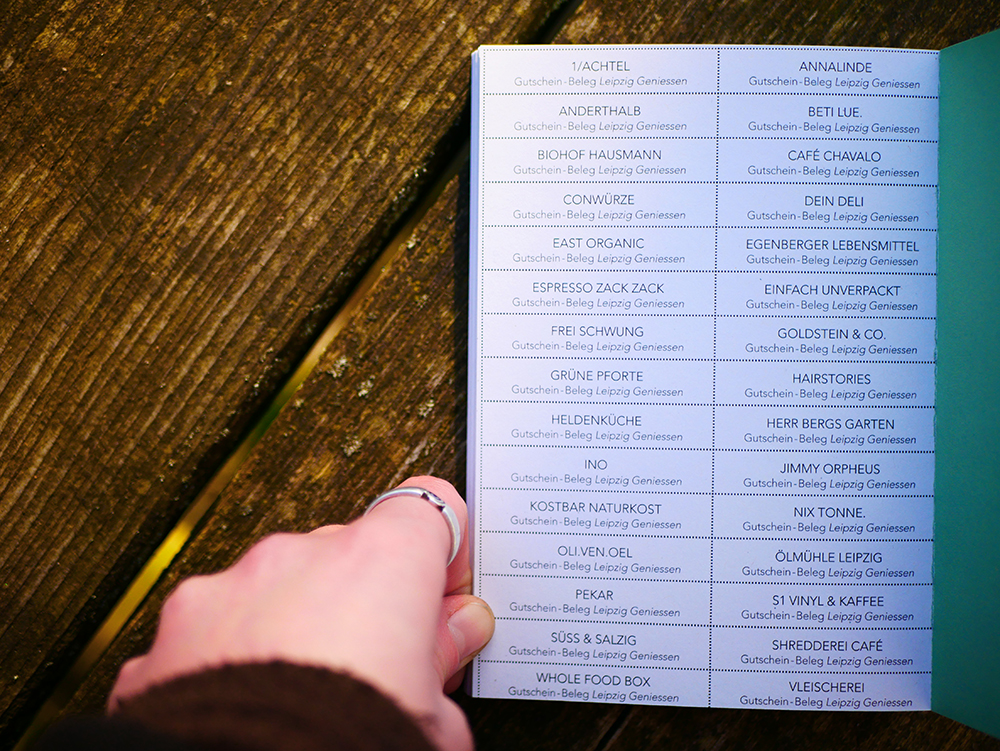 1/ACHTEL
Gutschein-Beleg Leipzig Geniessen
ANNALINDE
Gutschein-Beleg Leipzig Geniessen
ANDERTHALB
Gutschein-Beleg Leipzig Geniessen
BETI LUE.
Gutschein-Beleg Leipzig Geniessen
BIOHOF HAUSMANN
Gutschein-Beleg Leipzig Geniessen
CAFÉ CHAVALO
Gutschein-Beleg Leipzig Geniessen
CONWÜRZE
Gutschein-Beleg Leipzig Geniessen
DEIN DELI
Gutschein-Beleg Leipzig Geniessen
EAST ORGANIC
Gutschein-Beleg Leipzig Geniessen
EGENBERGER LEBENSMITTEL
Gutschein-Beleg Leipzig Geniessen
ESPRESSO ZACK ZACK
Gutschein-Beleg Leipzig Geniessen
EINFACH UNVERPACKT
Gutschein-Beleg Leipzig Geniessen
FREI SCHWUNG
Gutschein-Beleg Leipzig Geniessen
GOLDSTEIN & CO.
Gutschein-Beleg Leipzig Geniessen
GRÜNE PFORTE
Gutschein-Beleg Leipzig Geniessen
HAIRSTORIES
Gutschein-Beleg Leipzig Geniessen
HELDENKÜCHE
Gutschein-Beleg Leipzig Geniessen
HERR BERGS GARTEN
Gutschein-Beleg Leipzig Geniessen
INO
Gutschein-Beleg Leipzig Geniessen
JIMMY ORPHEUS
Gutschein-Beleg Leipzig Geniessen
KOSTBAR NATURKOST
Gutschein-Beleg Leipzig Geniessen
NIX TONNE.
Gutschein-Beleg Leipzig Geniessen
OLI.VEN.OEL
Gutschein-Beleg Leipzig Geniessen
ÖLMÜHLE LEIPZIG
Gutschein-Beleg Leipzig Geniessen
PEKAR
Gutschein-Beleg Leipzig Geniessen
S1 VINYL & KAFFEE
Gutschein-Beleg Leipzig Geniessen
SÜSS & SALZIG
Gutschein-Beleg Leipzig Geniessen
SHREDDEREI CAFÉ
Gutschein-Beleg Leipzig Geniessen
WHOLE FOOD BOX
Gutschein-Beleg Leipzig Geniessen
VLEISCHEREI
Gutschein-Beleg Leipzig Geniessen